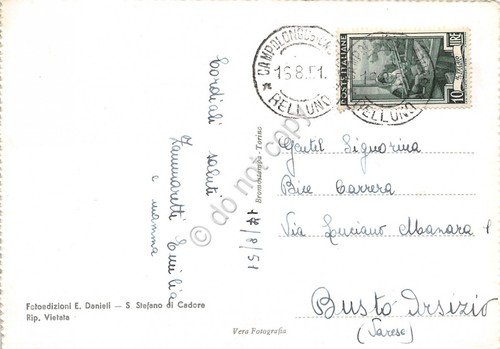 CAMPOLONGO
16.8.51.
BELLUNO
POSTE ITALIANE
LIRE
10
BELLUNO
Cordiali saluti
Zammaretti Emilia
e mamma
17/8/51
Gentil Signorina
Bice Carrera
Via Luciano Manara
Busto Arsizio
(Varese)
Bromostampa - Torino
Fotoedizioni E. Danieli — S. Stefano di Cadore
Rip. Vietata
Vera Fotografia
© do not copy